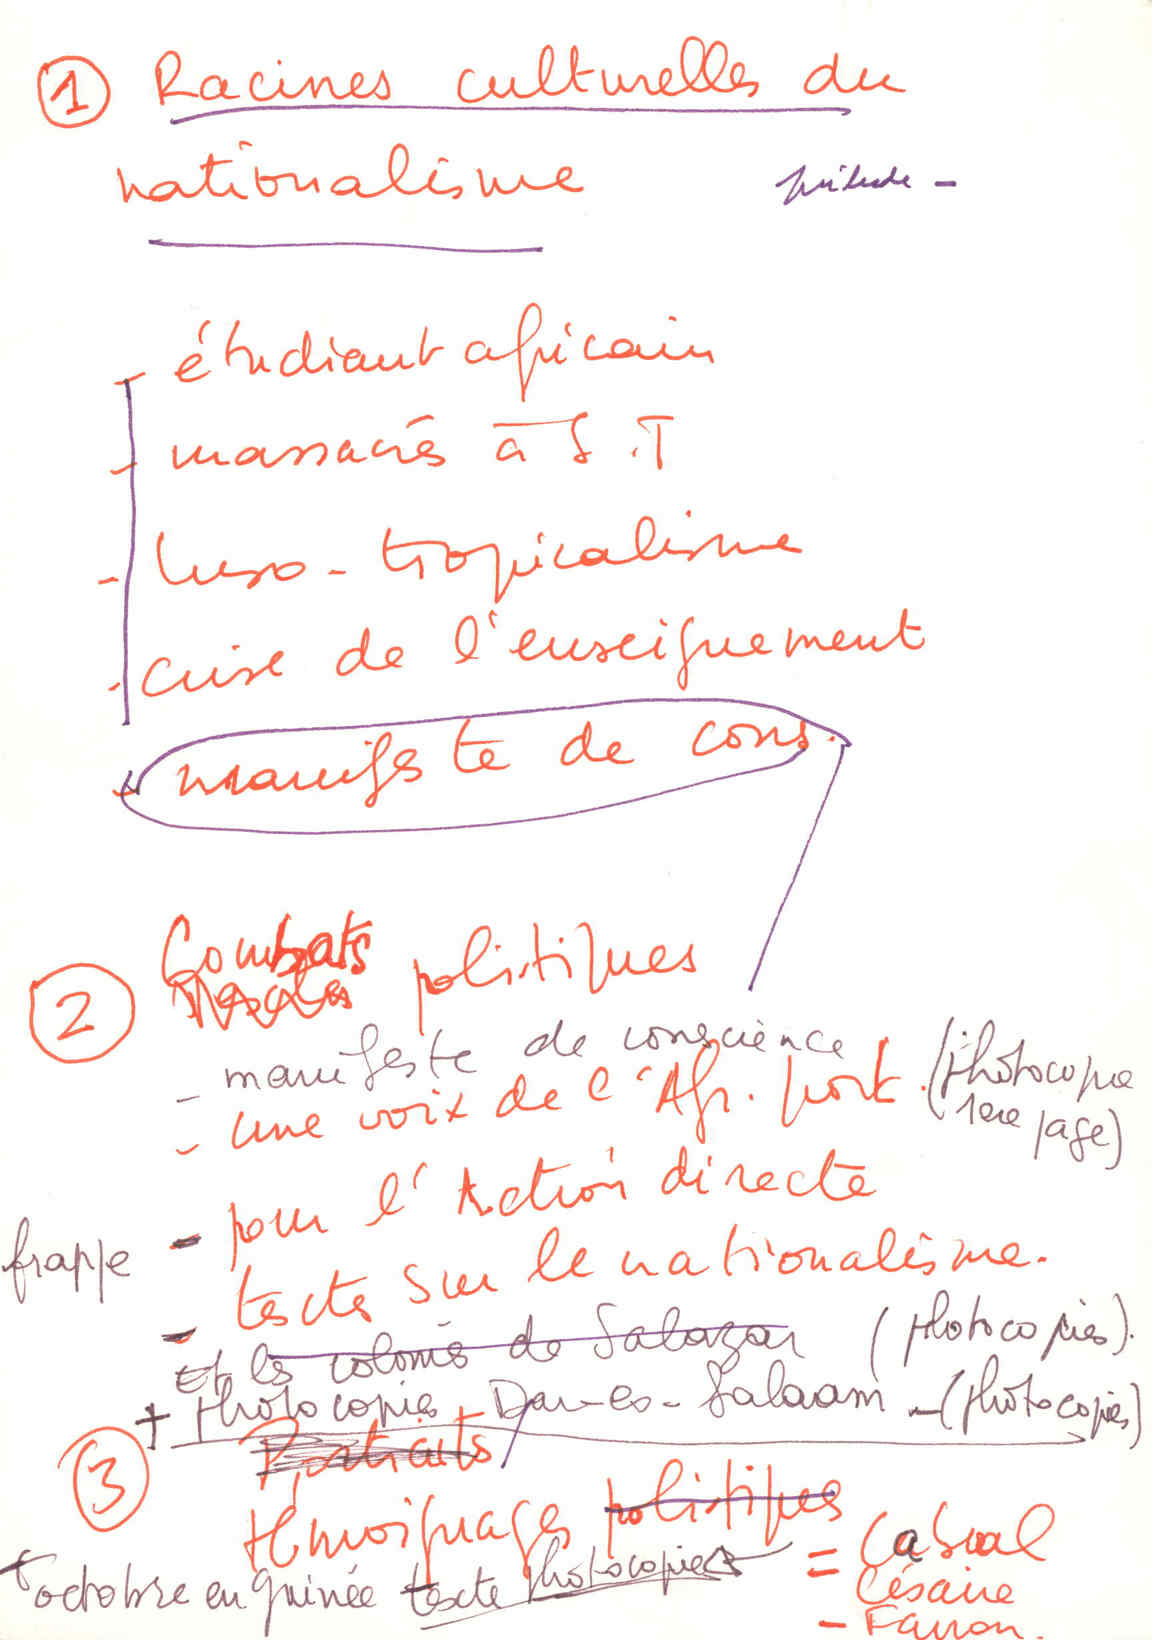 1 Racines culturelles du
nationalisme
- étudiant africain
- massacrés à S.T
- luso-tropicalisme
- crise de l'enseignement
- manifeste de cons.
Combats politiques
2
- manifeste de conscience (Photocopie
- une voix de l'Afr. port. 1ere page)
- pour l'Action directe
frappe
- textes sur le nationalisme.
Et les colonies de Salazar (photocopies).
+ Photocopies Dar-es-Salaam - (photocopies)
3 Portraits
témoignages politiques
= Cabral
+ octobre en guinée texte photocopies
Césaire
- Fanon.